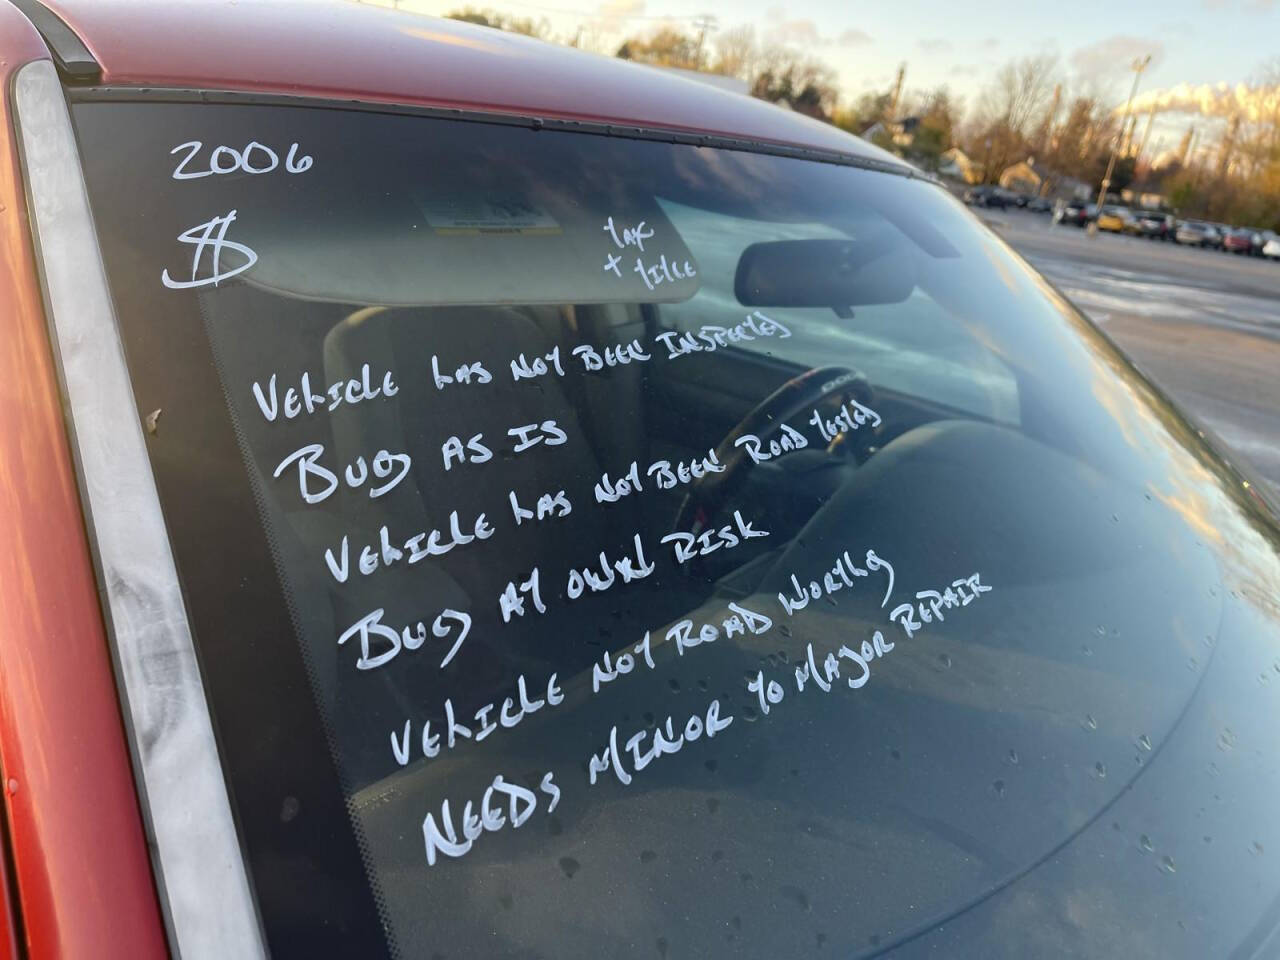 2006
$
TAX
+ TITLE
VEHICLE HAS NOT BEEN INSPECTED
BUY AS IS
VEHICLE HAS NOT BEEN ROAD TESTED
BUY AT OWN RISK
VEHICLE NOT ROAD WORTHY
NEEDS MINOR TO MAJOR REPAIR